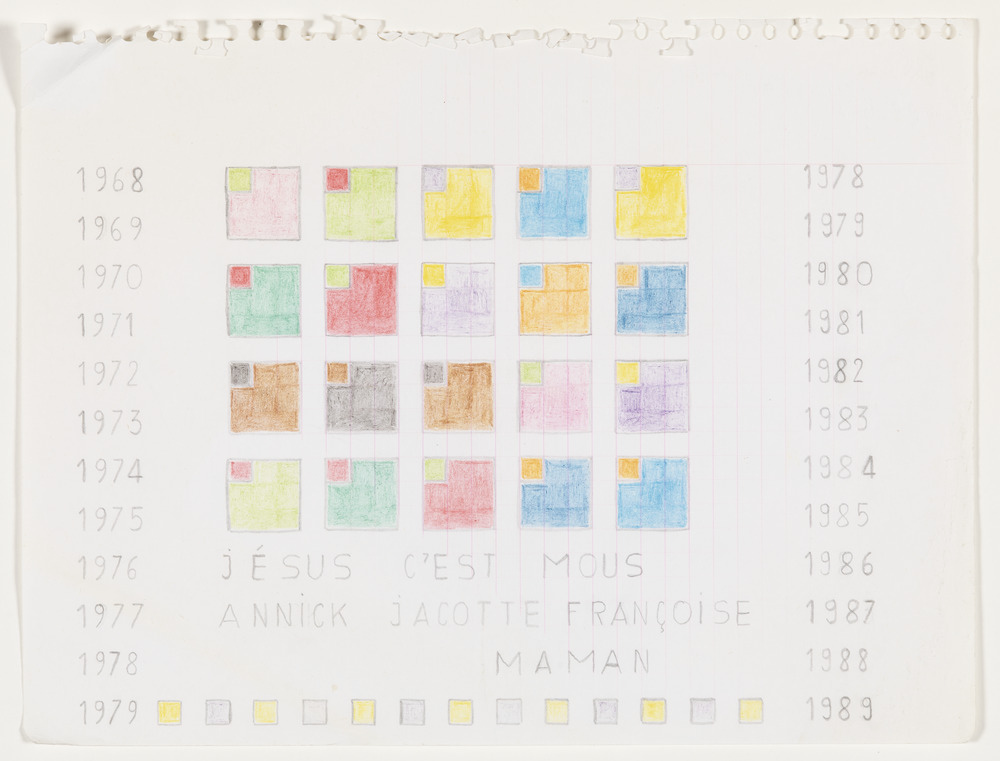 1968 1978
1969 1979
1970 1980
1971 1981
1972 1982
1973 1983
1974 1984
1975 1985
1976 JÉSUS C'EST MOUS 1986
1977 ANNICK JACOTTE FRANÇOISE 1987
1978 MAMAN 1988
1979 1989